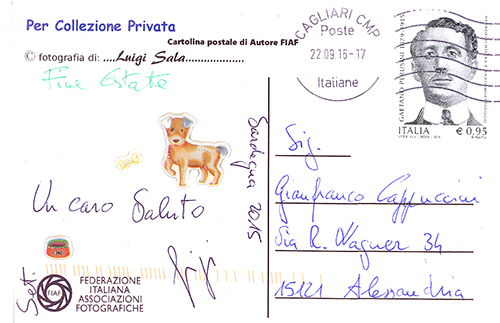 Per Collezione Privata
Cartolina postale di Autore FIAF
© fotografia di: ....Luigi Sala..................
Fine Estate
CAGLIARI CMP
Poste
22.09.15-17
Italiane
GAETANO PERUSINI 1879-1915
ITALIA
€ 0,95
Sardegna 2015
Un caro Saluto
Gigi
Set.
FIAF
FEDERAZIONE
ITALIANA
ASSOCIAZIONI
FOTOGRAFICHE
Sig.
Gianfranco Cappuccini
Via R. Wagner 34
15121 Alessandria